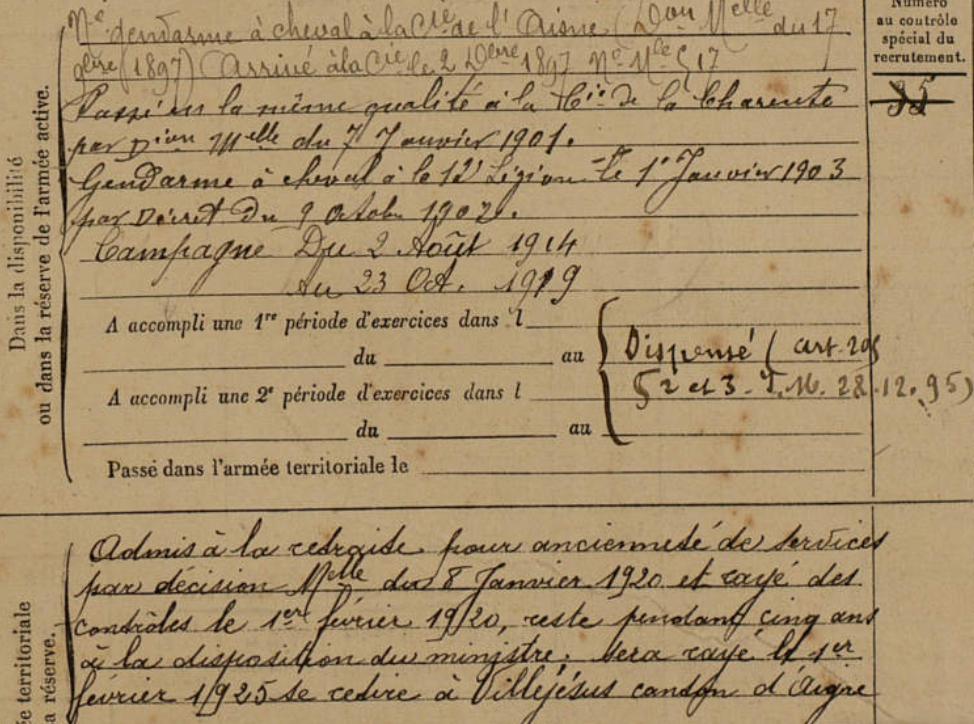 Numéro
au contrôle
spécial du
recrutement.
35
Dans la disponibilité
ou dans la réserve de l'armée active.
Né gendarme à cheval à la Cie de l'Aisne (Don Melle du 17
9bre 1897) Arrivé à la Cie le 2 Dbre 1897 No Mle 517
Passé en la même qualité à la Cie de la Charente
par Dion Melle du 7 Janvier 1901.
Gendarme à cheval à la 12e Légion le 1er Janvier 1903
par Décret du 9 Octobre 1902.
Campagne Du 2 Août 1914
au 23 Oct. 1919
A accompli une 1re période d'exercices dans l
du au
A accompli une 2e période d'exercices dans l
du au
Dispensé (art. 205
§ 2 et 3 - I. M. 28.12.95)
Passé dans l'armée territoriale le
ée territoriale
a réserve.
Admis à la retraite pour ancienneté de services
par décision Melle du 8 Janvier 1920 et rayé des
contrôles le 1er février 1920, reste pendant cinq ans
à la disposition du ministre. Sera rayé le 1er
février 1925 se retire à Villejésus canton d'Aigre